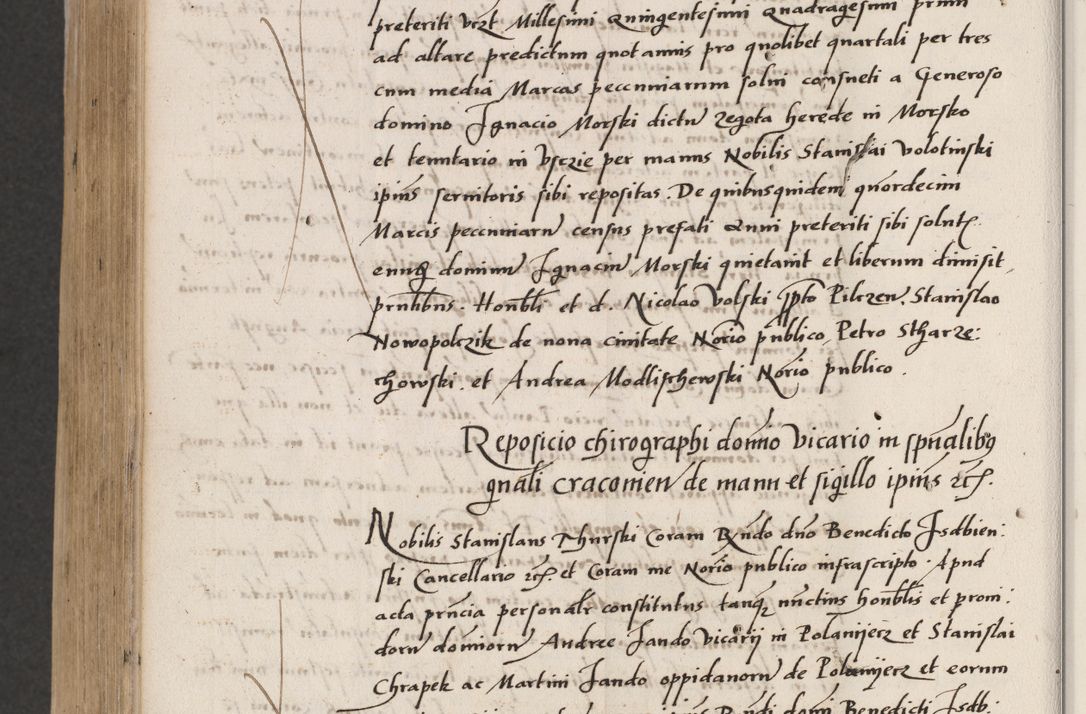 preteriti vczt Millesimi Quingentesimi Quadragesimi primi
ad altare predictum quotannis pro quolibet quartali per tres
cum media Marcas pecuniarum solui consueti a Generoso
domino Ignacio Morski dictu Zegota herede in Morsko
et tenutario in Vsczie per manus Nobilis Stanislai Volotinski
ipius seruitoris sibi repositas. De quibusquidem quordecim
Marcis pecuniaru census prefati Anni preteriti sibi solut.
eunq dominu Ignaciu Morski quietauit et liberum dimisit
pntibus. Honbli et d. Nicolao Volski ppto Pilczen. Stanislao
Nowopolczik de nona ciuitate Norio publico, Petro Stharze:
chowski. et Andrea Modlischewski Norio publico.
Reposicio chirographi donnio Vicario in spualibq
gnali Cracouien de manu et sigillo ipius zcf.
Nobilis Stanislaus Thurski Coram Rndo dno Benedicto Isdbien:
ski Cancellario zcf. et Coram me Norio publico infrascripto. Apud
acta pncia personalr constitutus tanq nuctius honblis et proui:
doru domioru Andree Iando Vicarij in Polanijecz et Stanislai
Chrapek ac Martini Iando oppidanoru de Polanijecz et eorum
Rndi domi Benedicti Isdb: